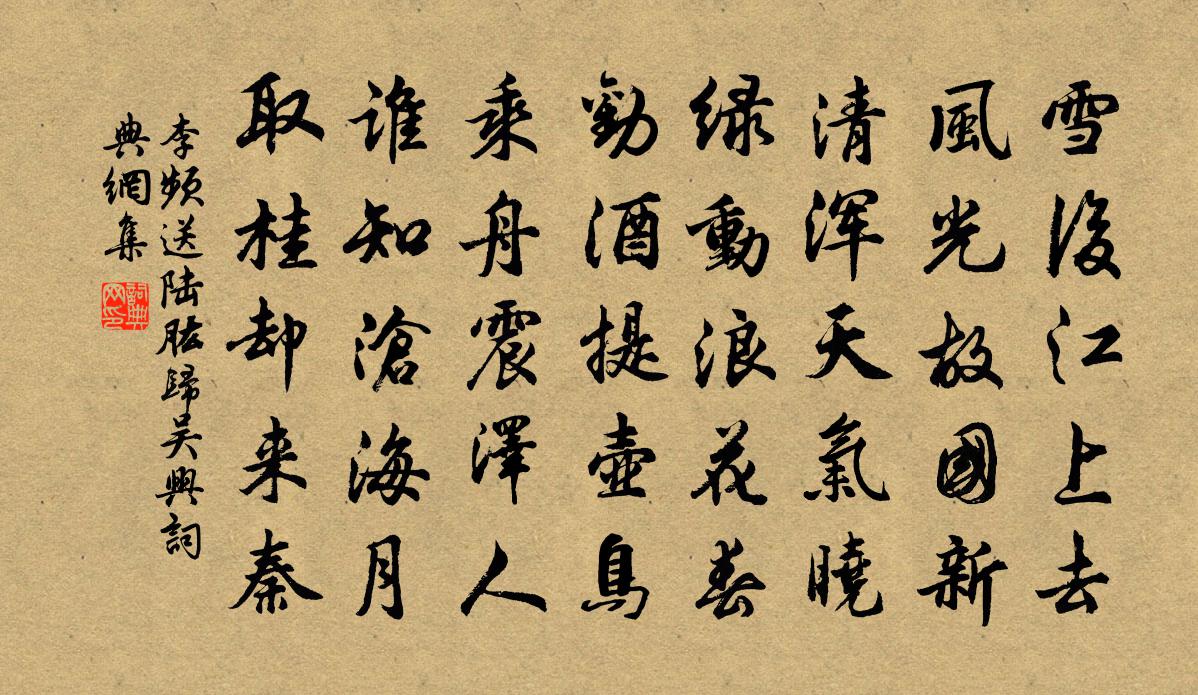 雪後江上去
風光故國新
清渾天氣曉
綠動浪花春
勸酒提壺鳥
乘舟震澤人
誰知滄海月
取桂却来秦
李頻送陸肱歸吴興詞
典網集
詞典
网印